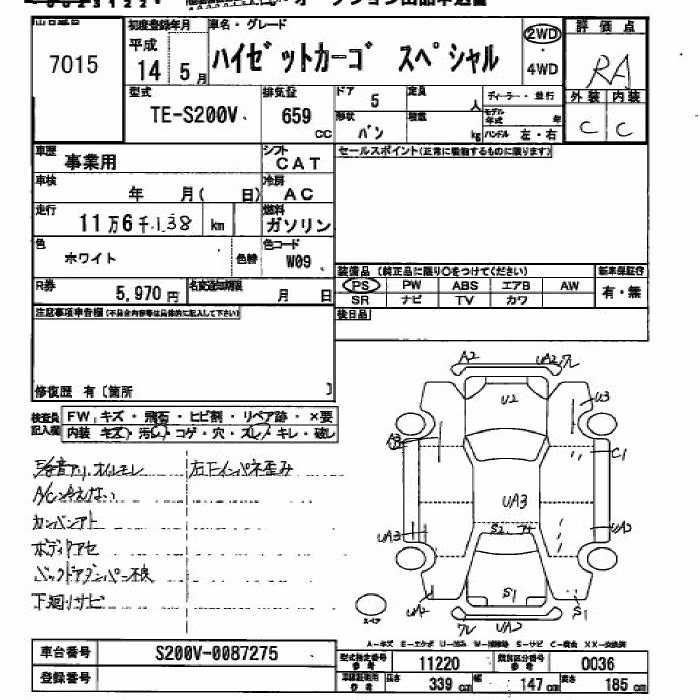 7015
初度登録年月 車名・グレード
平成
14 5月
ハイゼットカーゴ スペシャル
2WD
4WD
評価点
RA
外装 内装
C C
型式
TE-S200V
排気量
659 cc
ドア 5
定員 人
形状 バン
積載 kg
ディーラー・並行
モデル年式 年
ハンドル 左・右
車歴 事業用
シフト CAT
セールスポイント(正常に機能するものに限ります)
車検 年 月( 日)
冷房 AC
走行 11万6千138 km
燃料 ガソリン
色 ホワイト
色替
色コード W09
R券 5,970円
名変通知期限 月 日
装備品 (純正品に限り○をつけてください)
新車保証書
有・無
PS PW ABS エアB AW
SR ナビ TV カワ
後日品
注意事項申告欄(不具合内容等は具体的に記入して下さい)
修復歴 有〔箇所 〕
検査員記入欄
FW キズ・飛石・ヒビ割・リペア跡・×要
内装 キズ・汚レ・コゲ・穴・スレ・キレ・破レ
左下インパネ歪み
A/C冷えない
カンバンアト
ボディ色アセ
バックドアダンパー不良
下廻りサビ
A2 UA2
U2
U3
A3
C1
UA3
UA3
S2
UA2
S1
S1
UA2
スペア
A-キズ E-エクボ U-凹み W-補修跡 S-サビ C-腐食 XX-交換済
車台番号 S200V-0087275
登録番号
型式指定番号 参考 11220
類別区分番号 参考 0036
長さ 339 cm
幅 147 cm
高さ 185 cm